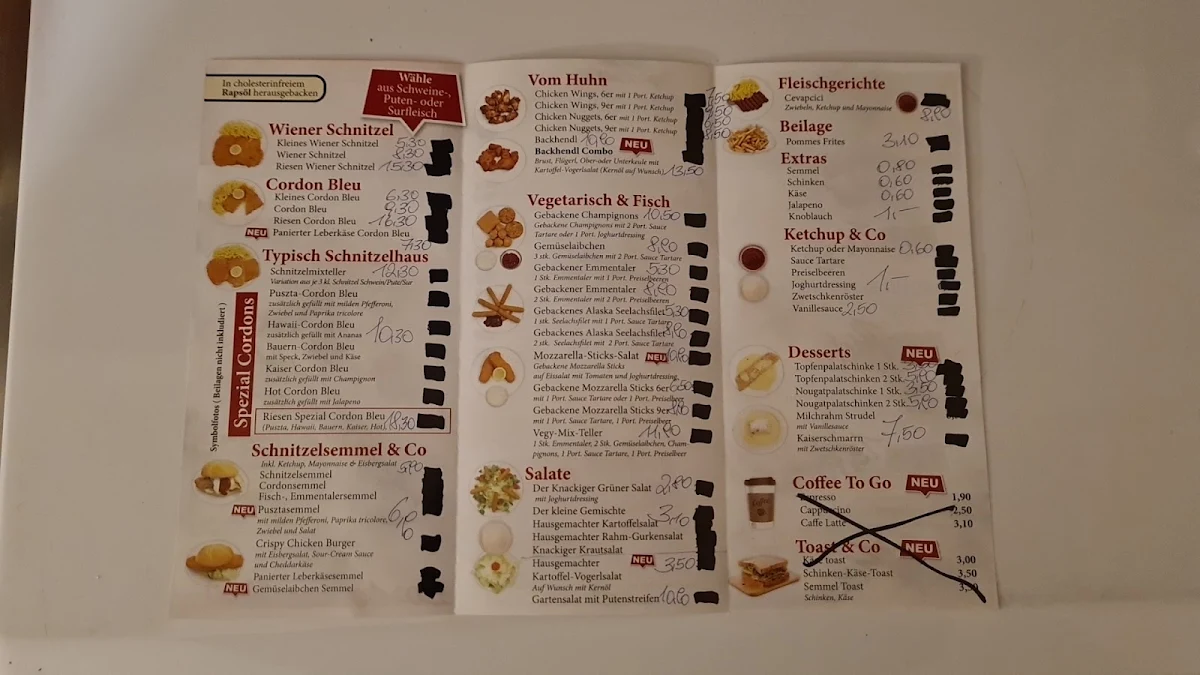 In cholesterinfreiem
Rapsöl herausgebacken
Wähle
aus Schweine-,
Puten- oder
Surfleisch
Wiener Schnitzel
Kleines Wiener Schnitzel 5,30
Wiener Schnitzel 8,30
Riesen Wiener Schnitzel 15,30
Cordon Bleu
Kleines Cordon Bleu 6,30
Cordon Bleu 9,30
Riesen Cordon Bleu 16,30
NEU Panierter Leberkäse Cordon Bleu
7,30
Typisch Schnitzelhaus
Schnitzelmixteller 12,30
Variation aus je 3 kl. Schnitzel Schwein/Pute/Sur
Symbolfotos ( Beilagen nicht inkludiert )
Spezial Cordons
Puszta-Cordon Bleu
zusätzlich gefüllt mit milden Pfefferoni,
Zwiebel und Paprika tricolore
Hawaii-Cordon Bleu
zusätzlich gefüllt mit Ananas 10,30
Bauern-Cordon Bleu
mit Speck, Zwiebel und Käse
Kaiser Cordon Bleu
zusätzlich gefüllt mit Champignon
Hot Cordon Bleu
zusätzlich gefüllt mit Jalapeno
Riesen Spezial Cordon Bleu 18,30
(Puszta, Hawaii, Bauern, Kaiser, Hot)
Schnitzelsemmel & Co
Inkl. Ketchup, Mayonnaise & Eisbergsalat
Schnitzelsemmel
Cordonsemmel
Fisch-, Emmentalersemmel
NEU Pusztasemmel
mit milden Pfefferoni, Paprika tricolore,
Zwiebel und Salat
Crispy Chicken Burger
mit Eisbergsalat, Sour-Cream Sauce
und Cheddarkäse
Panierter Leberkäsesemmel
NEU Gemüselaibchen Semmel
Vom Huhn
Chicken Wings, 6er mit 1 Port. Ketchup
Chicken Wings, 9er mit 1 Port. Ketchup
Chicken Nuggets, 6er mit 1 Port. Ketchup
Chicken Nuggets, 9er mit 1 Port. Ketchup
Backhendl NEU
Backhendl Combo
Brust, Flügerl, Ober-oder Unterkeule mit
Kartoffel-Vogerlsalat (Kernöl auf Wunsch) 13,50
Vegetarisch & Fisch
Gebackene Champignons 10,50
Gebackene Champignons mit 2 Port. Sauce
Tartare oder 1 Port. Joghurtdressing
Gemüselaibchen
3 stk. Gemüselaibchen mit 2 Port. Sauce Tartare
Gebackener Emmentaler 5,30
1 Stk. Emmentaler mit 1 Port. Preiselbeeren
Gebackener Emmentaler
2 Stk. Emmentaler mit 2 Port. Preiselbeeren
Gebackenes Alaska Seelachsfilet 5,30
1 stk. Seelachsfilet mit 1 Port. Sauce Tartare
Gebackenes Alaska Seelachsfilet
2 stk. Seelachsfilet mit 2 Port. Sauce Tartare
Mozzarella-Sticks-Salat NEU
Gebackene Mozzarella Sticks
auf Eissalat mit Tomaten und Joghurtdressing
Gebackene Mozzarella Sticks 6er
mit 1 Port. Sauce Tartare oder 1 Port. Preiselbeer
Gebackene Mozzarella Sticks 9er
mit 1 Port. Sauce Tartare, 1 Port. Preiselbeer
Vegy-Mix-Teller
1 Stk. Emmentaler, 2 Stk. Gemüselaibchen, Cham-
pignons, 1 Port. Sauce Tartare, 1 Port. Preiselbeer
Salate
Der Knackiger Grüner Salat
mit Joghurtdressing
Der kleine Gemischte
Hausgemachter Kartoffelsalat 3,10
Hausgemachter Rahm-Gurkensalat
Knackiger Krautsalat
Hausgemachter NEU 3,50
Kartoffel-Vogerlsalat
Auf Wunsch mit Kernöl
Gartensalat mit Putenstreifen
Fleischgerichte
Cevapcici
Zwiebeln, Ketchup und Mayonnaise
Beilage
Pommes Frites 3,10
Extras
Semmel 0,80
Schinken 0,60
Käse 0,60
Jalapeno
Knoblauch 1,-
Ketchup & Co
Ketchup oder Mayonnaise 0,60
Sauce Tartare
Preiselbeeren
Joghurtdressing 1,-
Zwetschkenröster
Vanillesauce 2,50
Desserts NEU
Topfenpalatschinke 1 Stk.
Topfenpalatschinken 2 Stk.
Nougatpalatschinke 1 Stk. 3,50
Nougatpalatschinken 2 Stk.
Milchrahm Strudel
mit Vanillesauce 7,50
Kaiserschmarrn
mit Zwetschkenröster
Coffee To Go NEU
Espresso 1,90
Cappuccino 2,50
Caffe Latte 3,10
Toast & Co NEU
Käsetoast 3,00
Schinken-Käse-Toast 3,50
Semmel Toast
Schinken, Käse